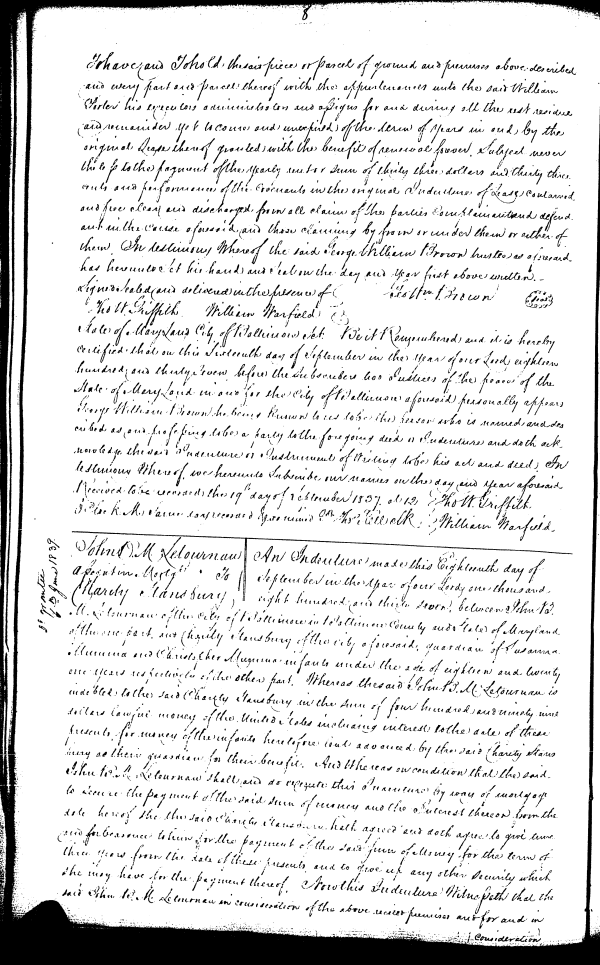 8
To have and To hold the said piece or parcel of ground and premises above described
and every part and parcel thereof with the appurtenances unto the said William
his executors administrators and assigns for and during all the rest residue
and remainder yet to come and unexpired of the term of years in and by the
original Lease thereof granted with the benefit of renewal forever. Subject never
theless to the payment of the yearly rent or sum of thirty three dollars and thirty three
cents and performance of the covenants in the original Indenture of Lease contained
and free clear and discharged from all claim of the parties complainant and defend
ant in the cause aforesaid and those claiming by from or under them or either of
them. In testimony Whereof the said George William Brown trustee as aforesaid
has hereunto set his hand and seal on the day and year first above written.
Signed sealed and delivered in the presence of Geo Wm Brown (Seal)
Tho W. Griffith William Warfield
State of Maryland City of Baltimore Sct. Be it Remembered and it is hereby
certified that on this Sixteenth day of September in the year of our Lord eighteen
hundred and thirty seven before the Subscribers two Justices of the peace of the
State of Maryland in and for the City of Baltimore aforesaid personally appears
George William Brown he being known to us to be the person who is named and des
cribed as and professing to be a party to the foregoing deed or Indenture and doth ack
nowledge the said Indenture or Instrument of Writing to be his act and deed. In
testimony Whereof we hereunto Subscribe our names on the day and year aforesaid
Received to be recorded the 19th day of September 1837 at 12 Tho W. Griffith
O'Clock M. Same day recorded & examined Pr Tho Clk William Warfield
John B. M. Letournau
Mortge To
Charity Stansbury
An Indenture made this Eighteenth day of
September in the year of our Lord one thousand
eight hundred and thirty seven between John B.
M. Letournau of the City of Baltimore in Baltimore County and State of Maryland
of the one part, and Charity Stansbury of the city aforesaid, guardian of Susanna
Mumma and Christopher Mumma infants under the age of eighteen and twenty
one years respectively of the other part. Whereas the said John B. M. Letournau is
indebted to the said Charity Stansbury in the sum of four hundred and ninety nine
dollars lawful money of the United States including interest to the date of these
presents, for money of the infants heretofore lent advanced by the said Charity Stans
bury as their guardian for their benefit. And Whereas on condition that the said
John B. M. Letournau shall and do execute this Indenture by way of mortgage
to secure the payment of the said sum of money and the Interest thereon from the
date hereof she the said Charity Stansbury hath agreed and doth agree to give time
and forbearance to him for the payment of the said sum of Money for the term of
three years from the date of these presents and to give up any other security which
she may have for the payment thereof. Now this Indenture Witnesseth that the
said John B. M. Letournau in consideration of the above recited premises and for and in
consideration